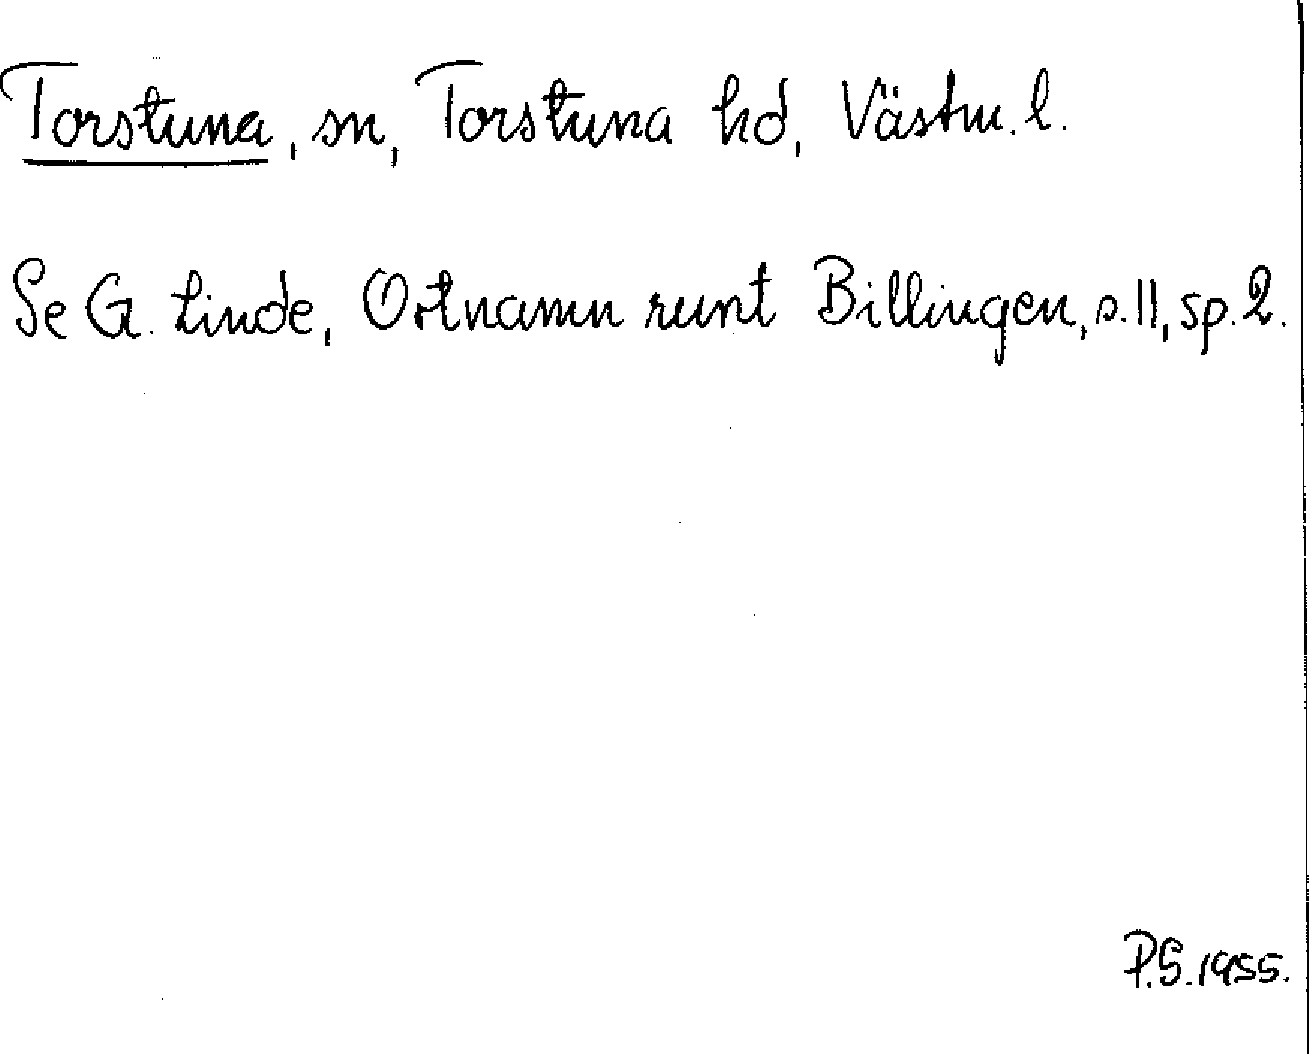 Torstuna, sn, Torstuna hd, Västm. l.
Se G. Linde, Ortnamn runt Billingen, s. 11, sp. 2.
P.S. 1955.